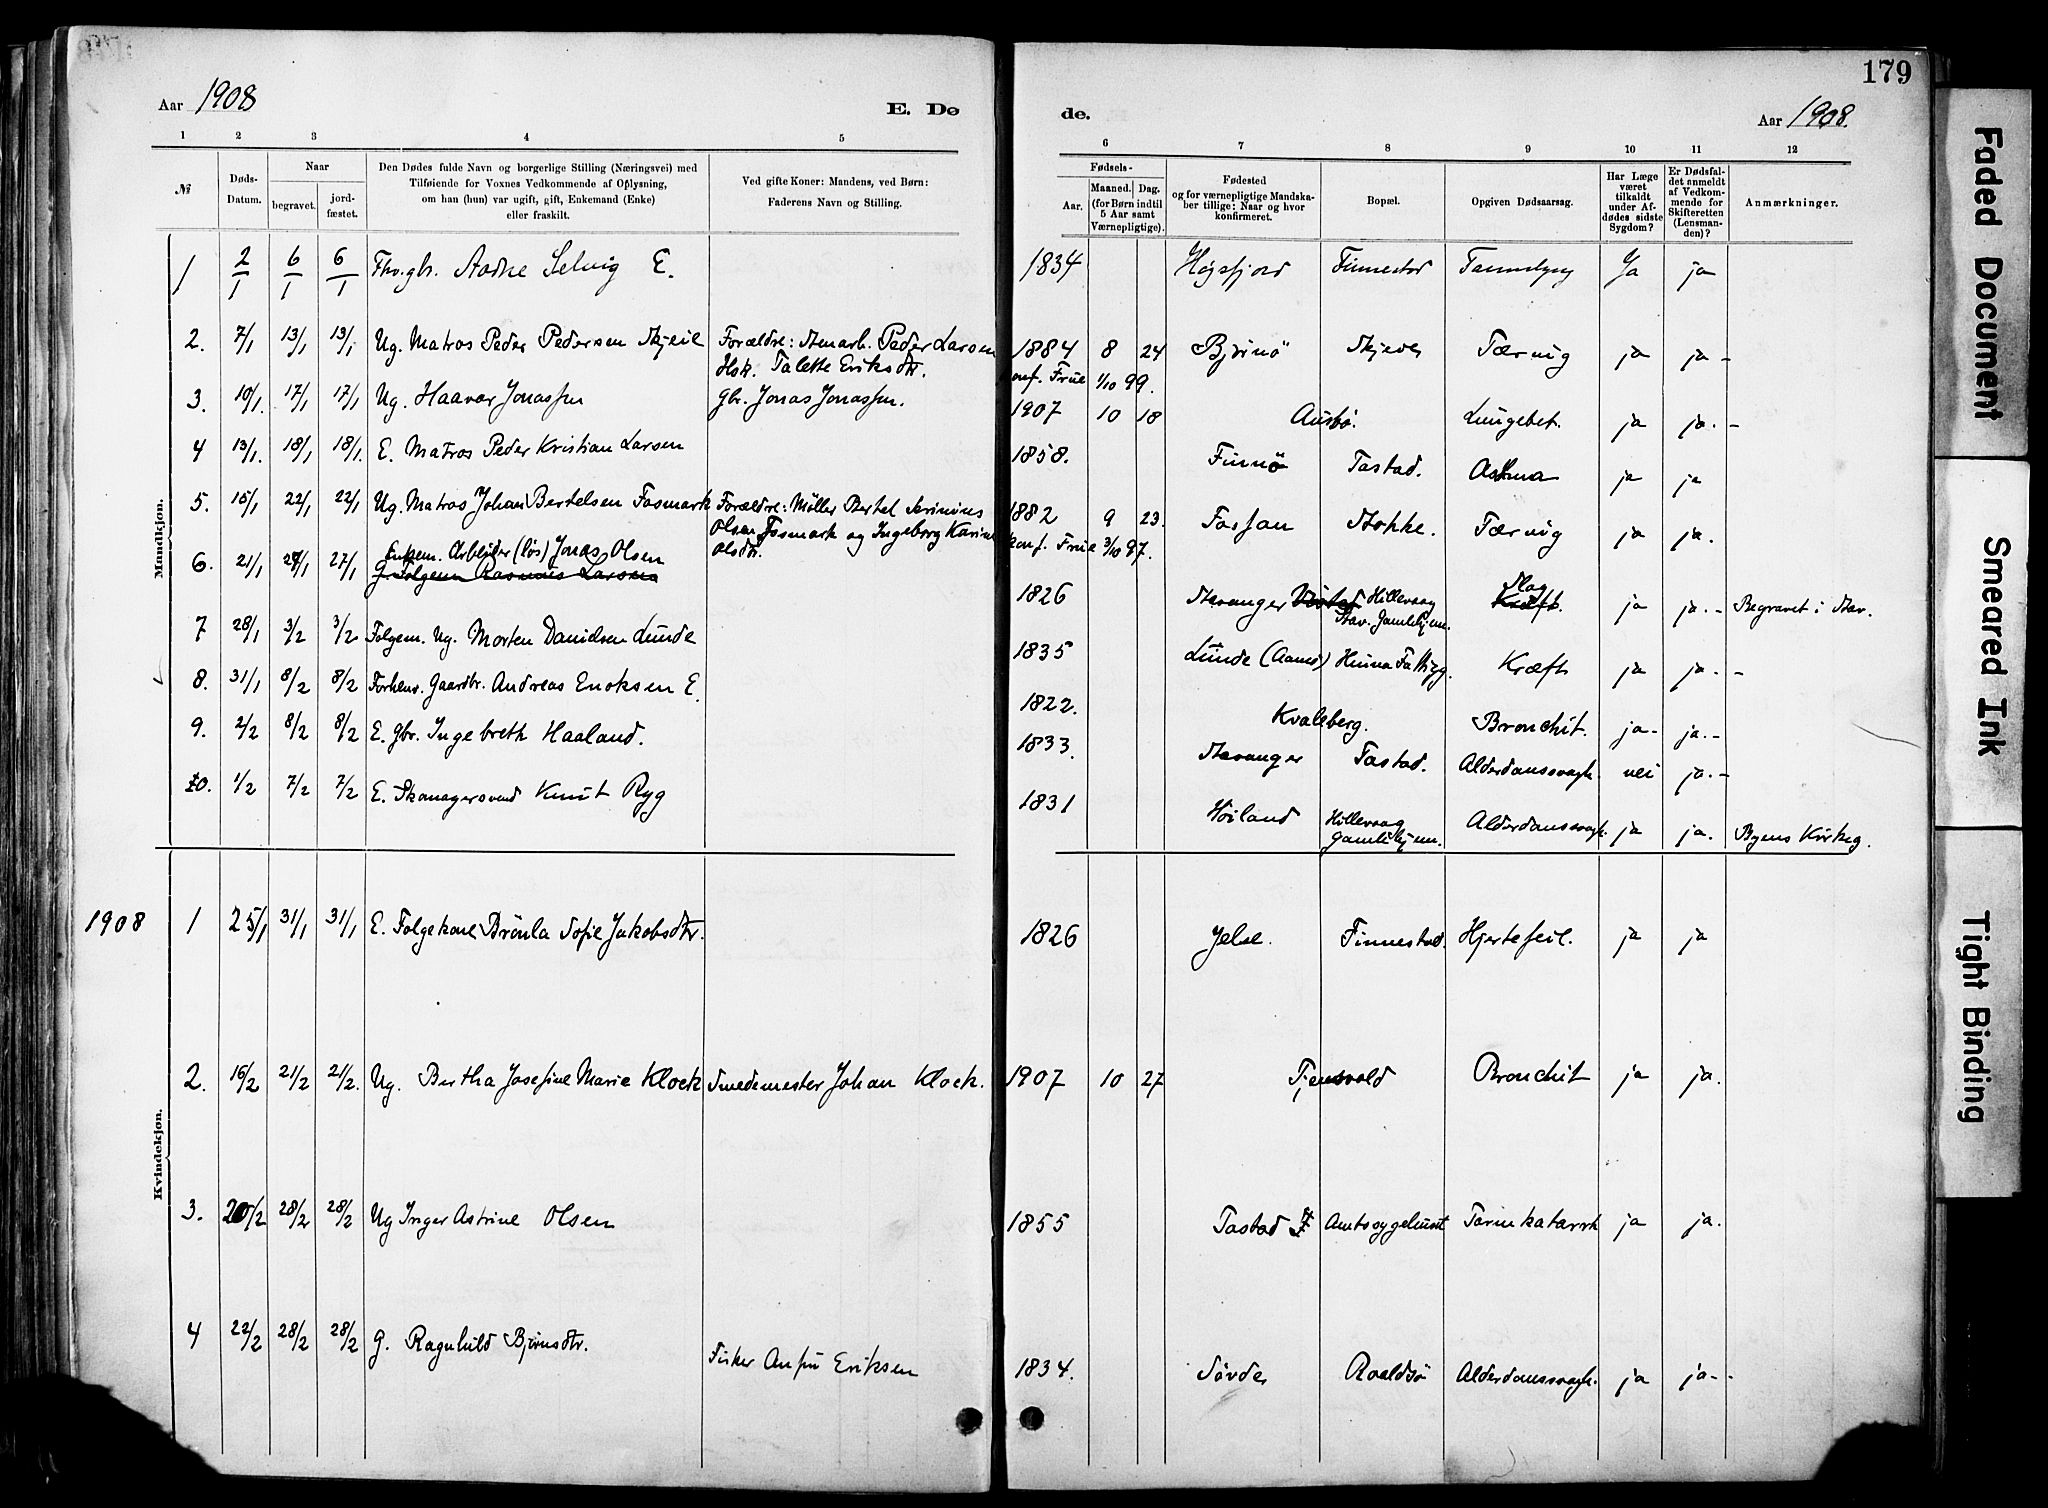 179
Aar 1908
E. Dø
de.
Aar 1908.
1 2 3 4 5
6 7 8 9 10 11 12
№
Døds-Datum.
Naar
begravet.
jord-fæstet.
Den Dødes fulde Navn og borgerlige Stilling (Næringsvei) med
Tilføiende for Voxnes Vedkommende af Oplysning,
om han (hun) var ugift, gift, Enkemand (Enke)
eller fraskilt.
Ved gifte Koner: Mandens, ved Børn:
Faderens Navn og Stilling.
Fødsels-
Aar.
Maaned. Dag.
(for Børn indtil
5 Aar samt
Værnepligtige).
Fødested
og for værnepligtige Mandska-
ber tillige: Naar og hvor
konfirmeret.
Bopæl.
Opgiven Dødsaarsag.
Har Læge
været
tilkaldt
under Af-
dødes sidste
Sygdom?
Er Dødsfal-
det anmeldt
af Vedkom-
mende for
Skifteretten
(Lensman-
den)?
Anmærkninger.
Mandkjøn.
1 2/1 6/1 6/1 Fhv. gbr. Aadne Selvig E. 1834 Høgsfjord Finnestad Ja ja
2. 7/1 13/1 13/1 Ug. Matros Peder Pedersen Skjeie Forældre: Stenarb. Peder Larsen 1884 8 24 Tæring ja ja -
Hstr. Talette Eriksdtr. konf. Frue 1/10 99.
3. 10/1. 17/1 17/1 Ug. Haavar Jonassen gbr. Jonas Jonassen. 1907 10 18 Ausbø. Lungebet. ja ja. -
4 13/1. 18/1 18/1. E. Matros Peder Kristian Larsen 1858. Finnö Tastad. Astma ja ja
5. 15/1 22/1 22/1 Ug. Matros Johan Bertelsen Fosmark Forældre: Møller Bertel Serinius 1882 9 23. Fossan Stokke. Tæring ja ja.
Olsen Fosmark og Ingeborg Karine konf. Frue 3/10 97.
Olsdtr.
6. 21/1 27/1 27/1 Enkem. Arbeider (løs) Jonas Olsen 1826 Stavanger Hillevaag Slag ja ja. - Begravet i Stav.
G. Folgem Rasmus Larsen Stav. Gamlehjem. Kræft.
7 28/1 3/2 3/2 Folgem. Ug. Morten Danielsen Lunde 1835 Lunde Hinna Fattigg. Kræft ja ja. -
8. 31/1 8/2 8/2 Forhenv. Gaardbr. Andreas Enoksen E. 1822. Kvaleberg. Bronchit. ja- ja. -
9. 2/2 8/2 8/2 E. gbr. Ingebreth Haaland. 1833. Stavanger Tastad. Alderdomssvagh. nei ja. -
10. 1/2 7/2 7/2 E. Skomagersvend Knut Ryg 1831 Høiland Hillevaag Alderdomssvagh. ja ja. Byens Kirkeg.
Gamlehjem.
Kvindekjøn.
1908 1 25/1 31/1 31/1 E. Folgekone Brönla Sofie Jakobsdtr. 1826 Jelse. Finnestad. Hjertefeil. ja ja
2. 16/2 21/2 21/2. Ug. Bertha Josefine Marie Klock Smedemester Johan Klock. 1907 10 27 Tjensvold Bronchit ja ja.
3. 20/2 28/2 28/2 Ug Inger Astrine Olsen 1855 Tastad Amtssygehuset Tarmkatarrh ja ja.
4 22/2 28/2 28/2 G. Ragnhild Bjørnsdtr. Fisker Eriksen 1834. Søvde Roaldsö Alderdomssvagh. ja ja - -
Faded Document
Smeared Ink
Tight Binding